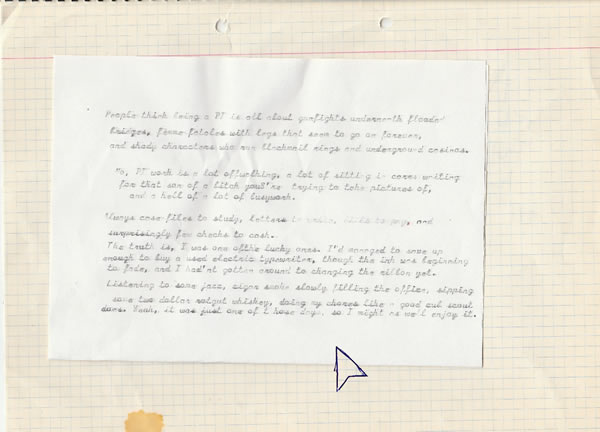 People think being a PI is all about gunfights underneath flooded
bridges, femme-fatales with legs that seem to go on forever,
and shady characters who run blackmail rings and underground casinos.
No, PI work is a lot a lot of sitting in cares writing
for that son of a bitch youS're trying to take pictures of,
and a hell of a lot of busywork.
Always case files to study, letters to write, bills to pay, and
surprisingly few checks to cash.
The truth is, I was one ofthe lucky ones. I'd managed to save up
enough to buy a used electric typewriter, though the ink was beginning
to fade, and I had'nt gotten around to changing the ribbon yet.
Listening to some jazz, cigar smoke slowly filling the office, sipping
some two dollar rotgut whiskey, doing my chores like a good cub scout
does. Yeah, it was just one of t hose days, so I might as we'll enjoy it.